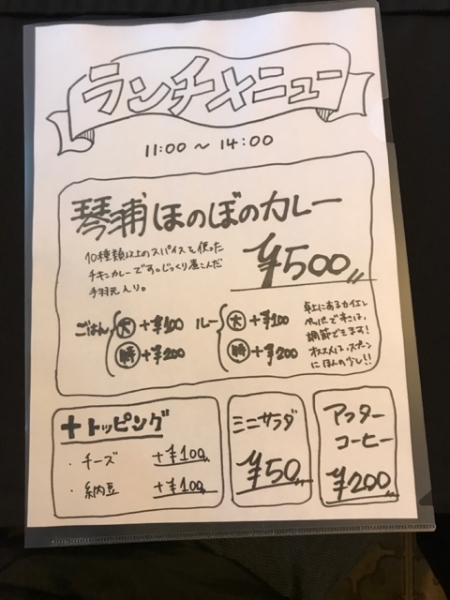 ランチメニュー
11:00 〜 14:00
琴浦ほのぼのカレー
10種類以上のスパイスを使った
チキンカレーです。じっくり煮こんだ
手羽元入り。
¥500
ごはん 大 +¥100
特 +¥200
ルー 大 +¥100
特 +¥200
卓上にあるカイエン
ペッパーで辛さは、
調節できます!
オススメは、スプーン
にほんの少し!!
+トッピング
・チーズ +¥100
・納豆 +¥100
ミニサラダ
¥50
アフター
コーヒー
¥200